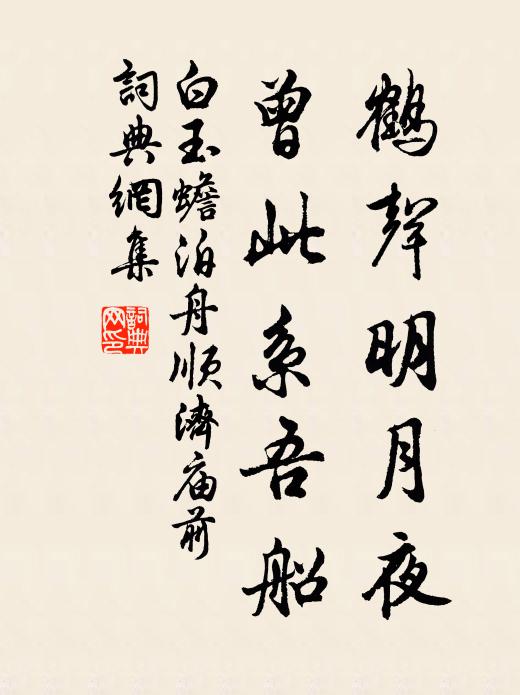 鶴聲明月夜
曾此系吾船
白玉蟾泊舟順濟庙前
詞典網集
詞典网印